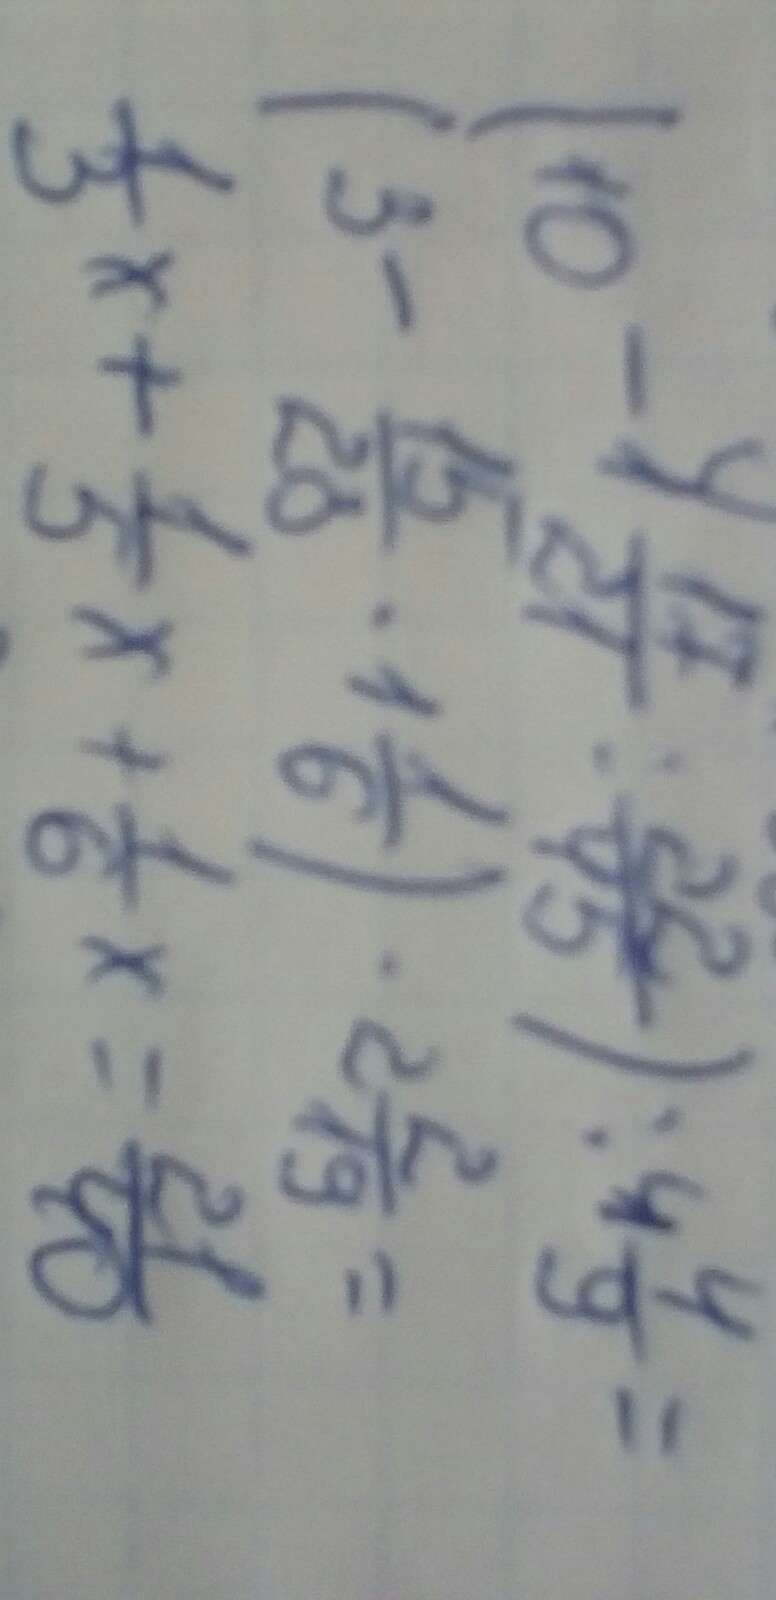 (10 - 1 17/27 : 22/45) : 4 4/9 =
(3 - 15/28 · 1 1/6) · 2 2/19 =
1/3 x + 1/5 x + 1/6 x = 21/40